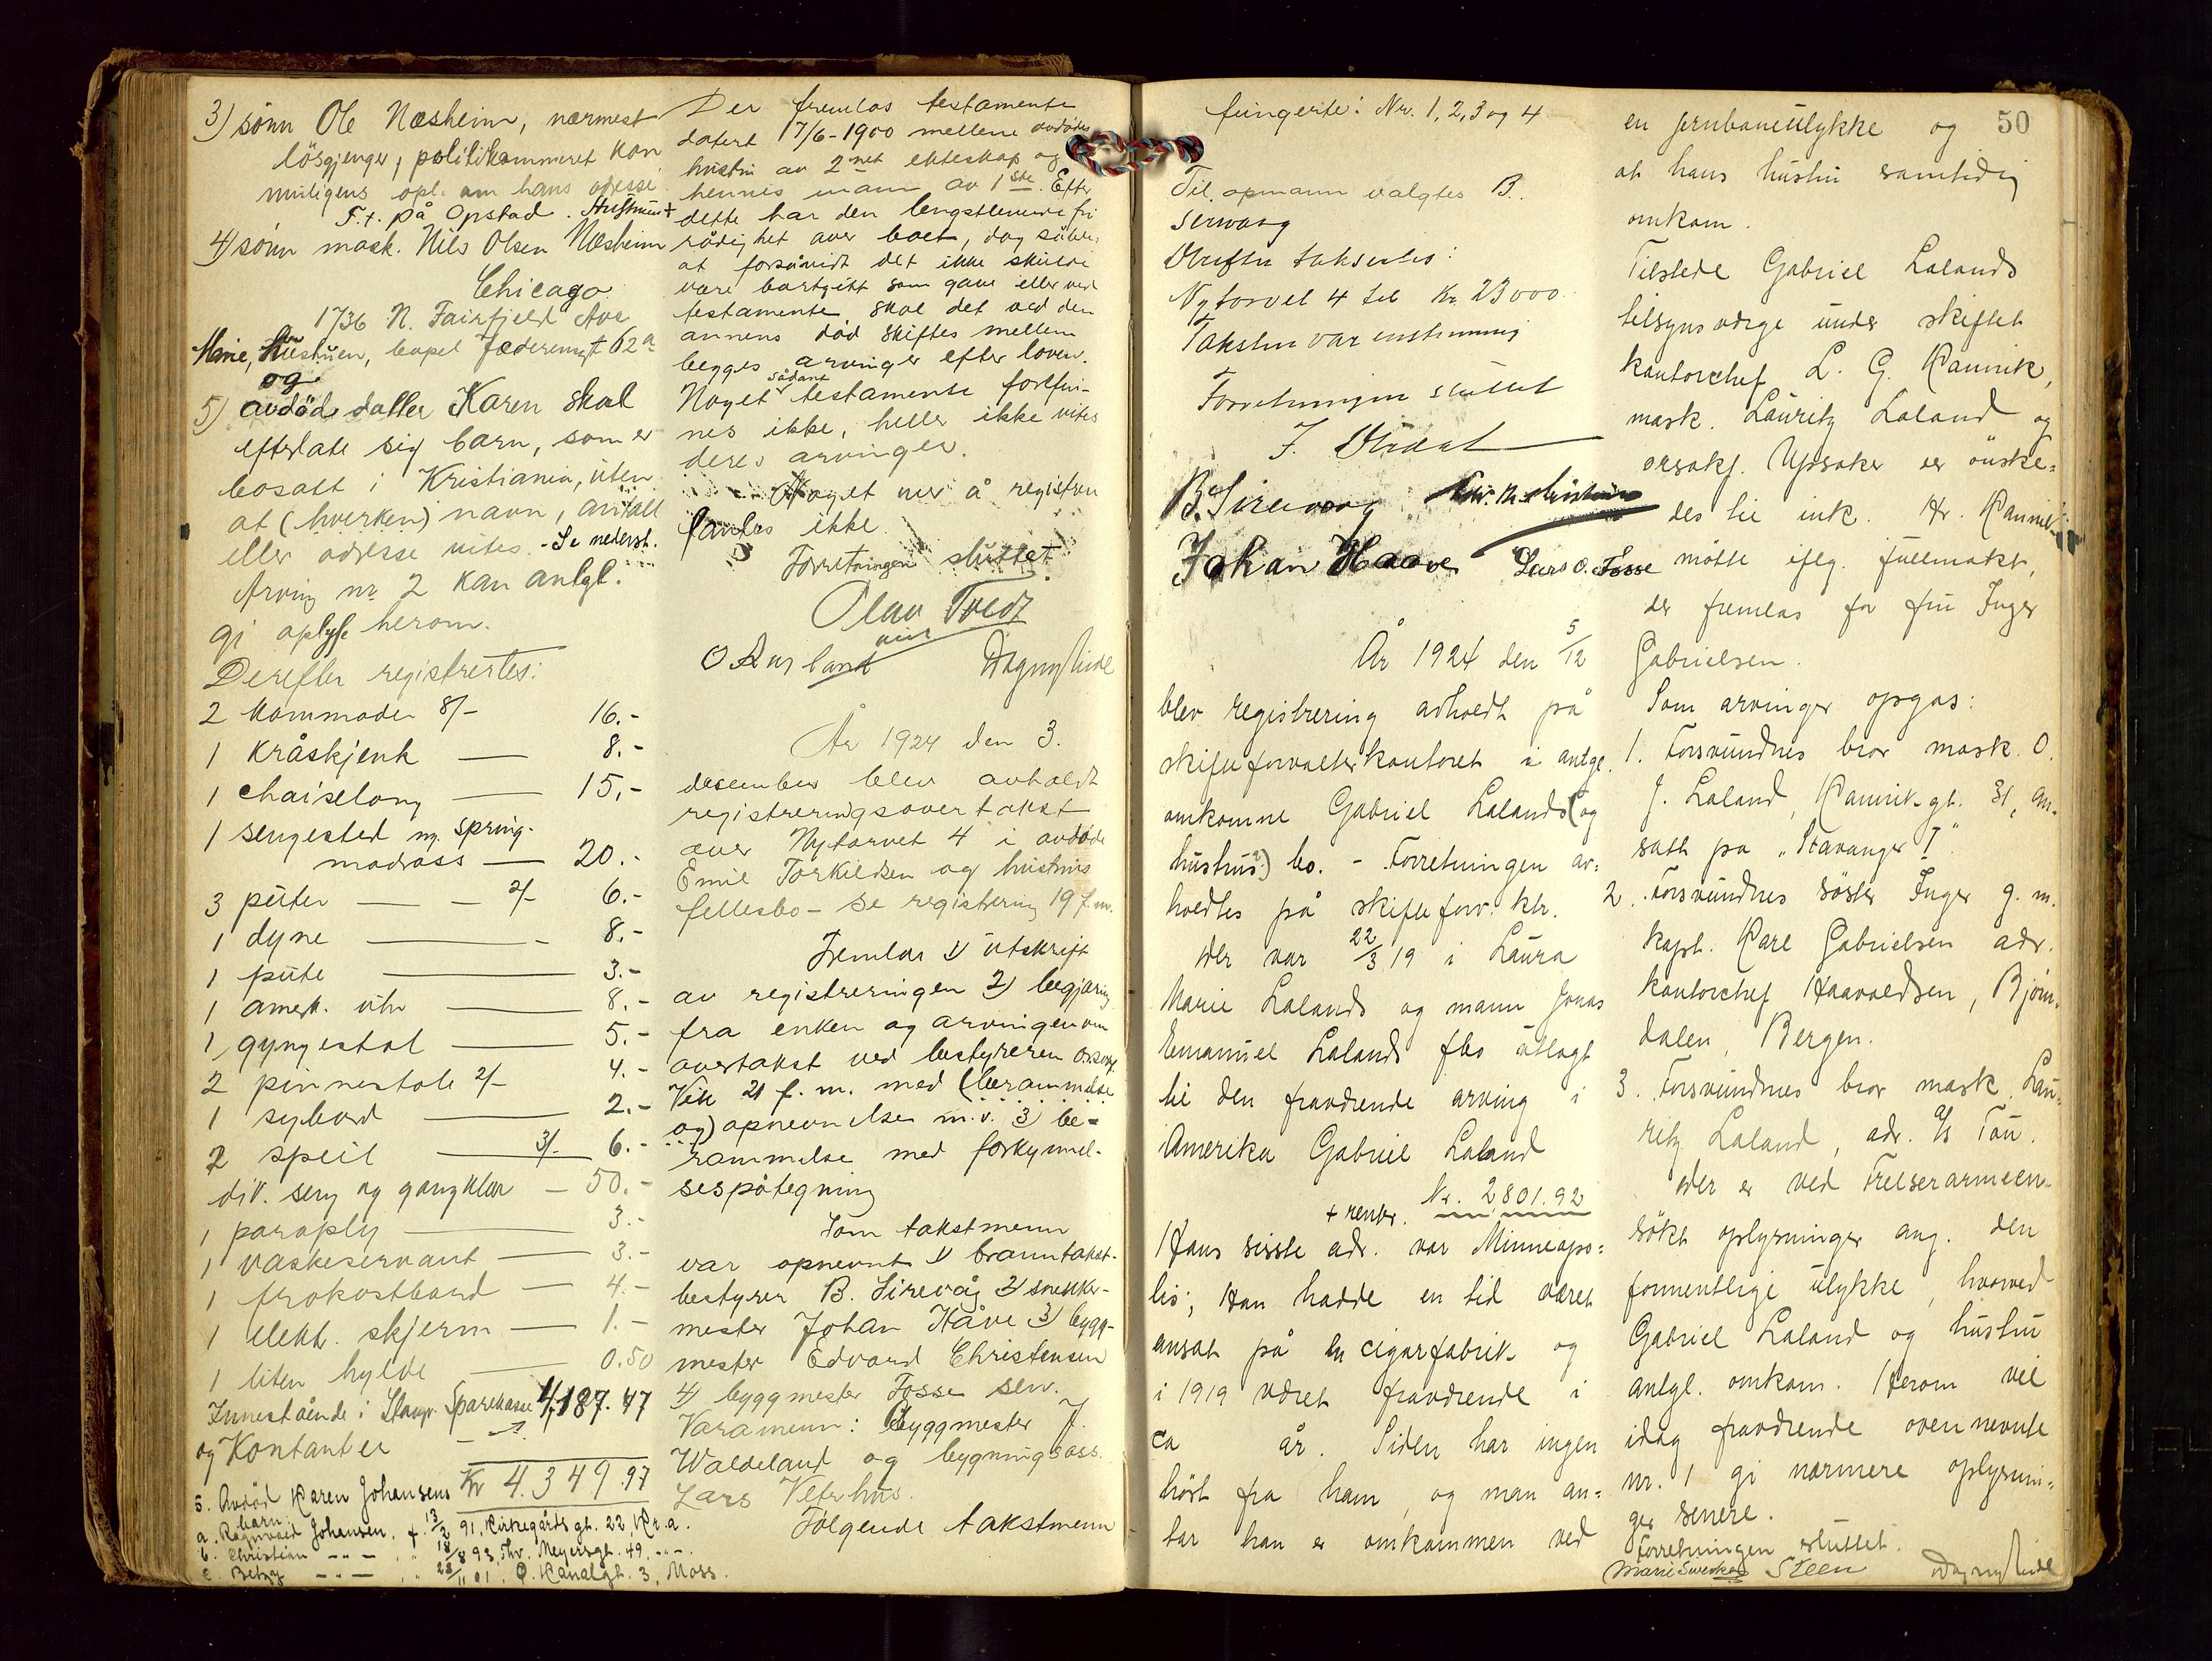 3) sönn Ole Næsheim, nærmest
lösgjenger, politikammeret kan
muligens opl. om hans adresse.
F.t. på Opstad.
4) sönn mask. Nils Olsen Næsheim
Chicago
1736 N. Fairfield Ave
Marie, hustruen, bopel Jæderengt 62a
og
5) avdöde datter Karen skal
efterlate sig barn, som er
bosatt i Kristiania, uten
at (hverken) navn, antall
eller adresse vites. - Se nederst.
Arving nr 2 kan antgl.
gi oplyse herom.
Derefter registrertes:
2 kommoder 8/- 16.-
1 kråskjenk — 8.-
1 chaiselong — 15,-
1 sengested m. spring-
madrass — 20.-
3 puter — 2/- 6.-
1 dyne — 8.-
1 pute — 3.-
1 amerk. uhr — 8.-
1 gyngestol — 5.-
2 pinnestole 2/- 4.-
1 sybord — 2.-
2 speil — 3/- 6.-
div. seng og gangklær — 50.-
1 paraply — 3.-
1 vaskeservant — 3.-
1 frokostbord — 4.-
1 elekt. skjerm — 1.-
1 liten hylde — 0.50
Innestående i Stavgr. Sparekasse 4,187.47
og Kontanter
Kr 4.349.97
5. Avdöd Karen Johansens
barn
a. Ragnvald Johansen, f. 13/2 91, Kirkegårds gt. 22, Kr.a.
b. Christian -"- 18/8 93, Thv. Meyersgt. 49, -"-
c. Betzy -"- 28/11 01, Ø. Kanalgt. 3, Moss.
Der fremlas testamente
datert 17/6-1900 mellem avdödes
hustru av 2net ekteskap og
hennes mann av 1ste. Efter
dette har den lengstlevende fri
rådighet over boet, dog således
at forsåvidt det ikke skulde
være bortgitt som gave eller ved
testamente, skal det ved den
annens död skiftes mellem
begges arvinger efter loven.
Noget sådant testamente forefin-
nes ikke, heller ikke vites
deres arvinger.
Noget mer å registrere
fantes ikke.
Forretningen sluttet
Olav Tvedt
O Aurland Dagny Linde
År 1924 den 3.
desember blev avholdt
registreringsovertakst
over Nytorvet 4 i avdöde
Emil Torkildsen og hustrus
fellesbo - se registrering 19 f.m.
Fremlas 1) utskrift
av registreringen 2) begjæring
fra enken og arvingen om
overtakst ved bestyreren orsakf.
Vik 21 f.m. med (berammelse
og) opnevnelse m.v. 3) be-
rammelse med forkynnel-
sespåtegning
Som takstmenn
var opnevnt 1) branntakst-
bestyrer B. Sirevåg 2) snekker-
mester Johan Håve 3) bygg-
mester Edvard Christensen
4) byggmester Fosse sen.
Varamenn: Byggmester J.
Waldeland og bygningsass.
Lars Veterhus.
Følgende takstmenn
fungerte: Nr. 1, 2, 3 og 4
Til opmann valgtes B.
Sirevaag
Derefter taksertes:
Nytorvet 4 til Kr. 23000
Taksten var enstemmig
Forretningen sluttet
B. Sirevaag
Johan Haave Lars O. Fosse
År 1924 den 5/12
blev registrering avholdt på
skifteforvalterkontoret i antgl.
omkomne Gabriel Lalands (og
hustrus?) bo. - Forretningen av-
holdtes på skifteforv. ktr.
Der var 22/3 19 i Laura
Marie Lalands og mann Jonas
Emanuel Lalands fbo utlagt
til den fraværende arving i
Amerika Gabriel Laland
Kr. 2801.92
+ renter.
Hans sisste adr. var Minneapo-
lis; Han hadde en tid været
ansat på en cigarfabrik og
i 1919 været fraværende i
ca år. Siden har ingen
hört fra ham, og man an-
tar han er omkommen ved
50
en jernbaneulykke og
at hans hustru samtidig
omkom.
Tilstede Gabriel Lalands
tilsynsverge under skiftet
kontorchef L. G. Rannik,
mask. Lauritz Laland og
orsakf. Upsaker er önske-
des til ink. Hr. Rannik
mötte eflg. fullmakt,
der fremlas for fru Inger
Gabrielsen.
Som arvinger opgas:
1. Forsvundnes bror mask. O.
J. Laland, Rannik gt. 31, an-
satt på "Stavanger I"
2. Forsvundnes söster Inger g. m.
kapt. Karl Gabrielsen adr.
kontorchef Haavoldsen, Björn-
dalen, Bergen.
3. Forsvundnes bror mask. Lau-
ritz Laland, adr. A/S Tau.
Der er ved Frelserarmeen
sökt oplysninger ang. den
formentlige ulykke, hvorved
Gabriel Laland og hustru
antgl. omkom. Herom vil
idag fraværende ovennevnte
nr. 1 gi nærmere oplysnin-
ger senere.
Forretningen sluttet.
Marie Sweeked Steen Dagny Linde